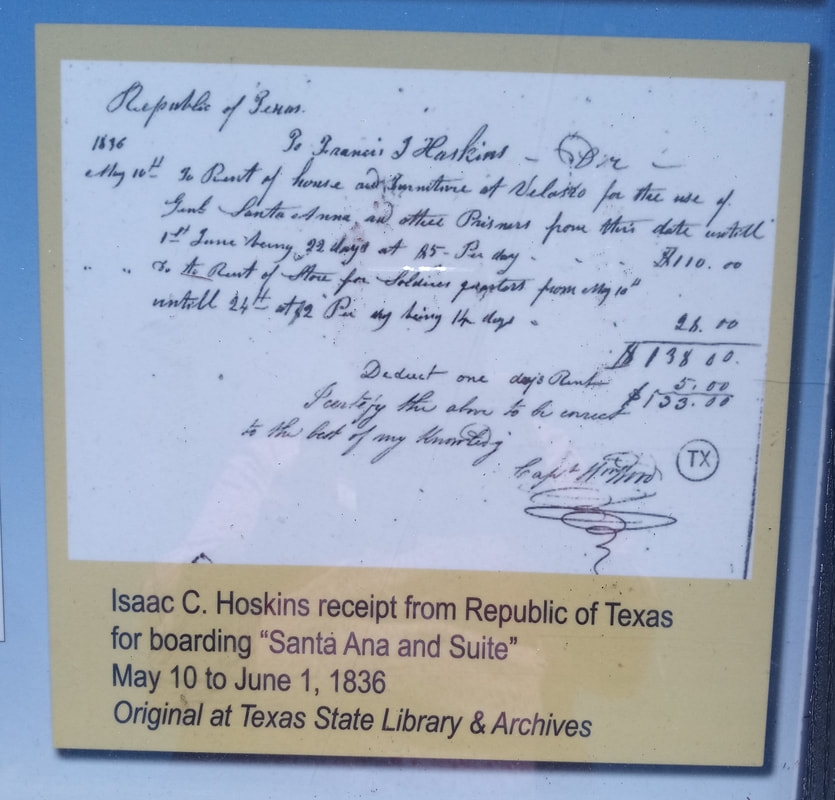 Republic of Texas.
1836 To Francis J Haskins - Dr -
May 10th To Rent of house and Furniture at Velasco for the use of
Genl Santa Anna, and other Prisners from this date untill
1st June being 22 days at $5- Per day - - - $110.00
" " To the Rent of Store for Soldiers quarters from May 10th
untill 24th at $2 Per day being 14 days - 28.00
$138 00.
Deduct one days Rent 5.00
$133.00
I certify the above to be correct
to the best of my Knowledg
Capt
TX
Isaac C. Hoskins receipt from Republic of Texas
for boarding “Santa Ana and Suite”
May 10 to June 1, 1836
Original at Texas State Library & Archives